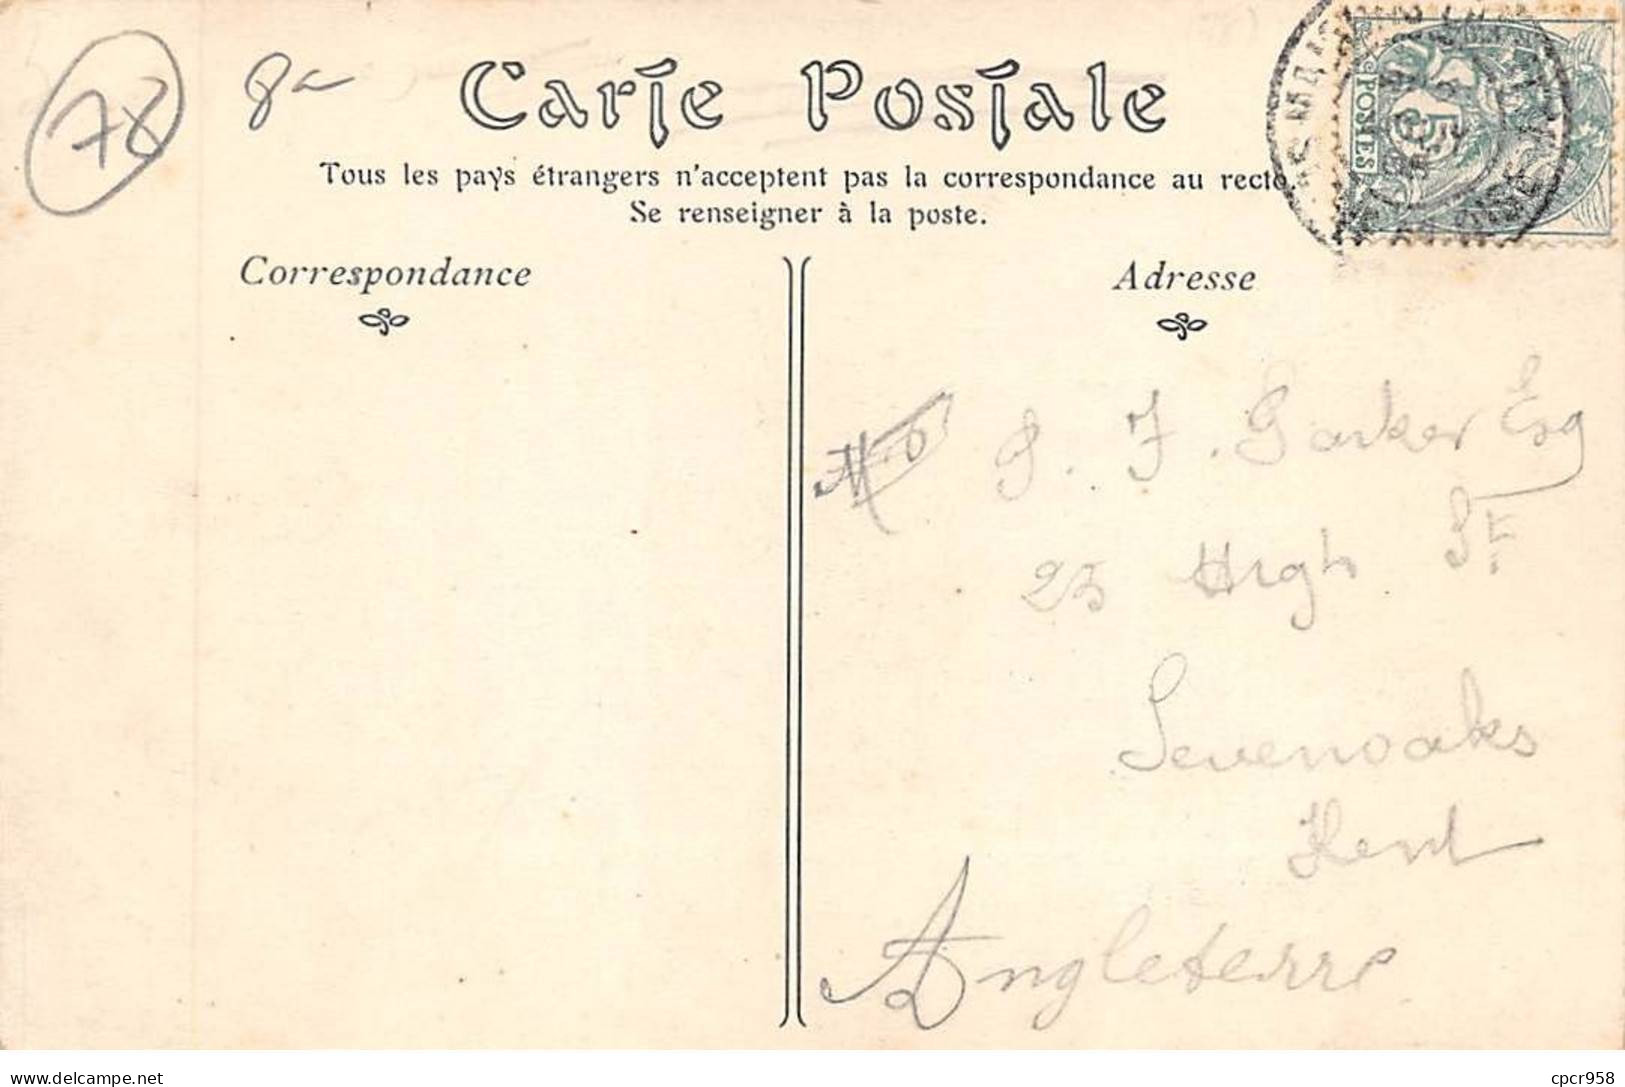 78
8
Carte Postale
Tous les pays étrangers n'acceptent pas la correspondance au recto.
Se renseigner à la poste.
POSTES
5
Correspondance
Adresse
J. Parker Esq
25 High St
Sevenoaks
Kent
Angleterre
delcampe.net
cpcr958